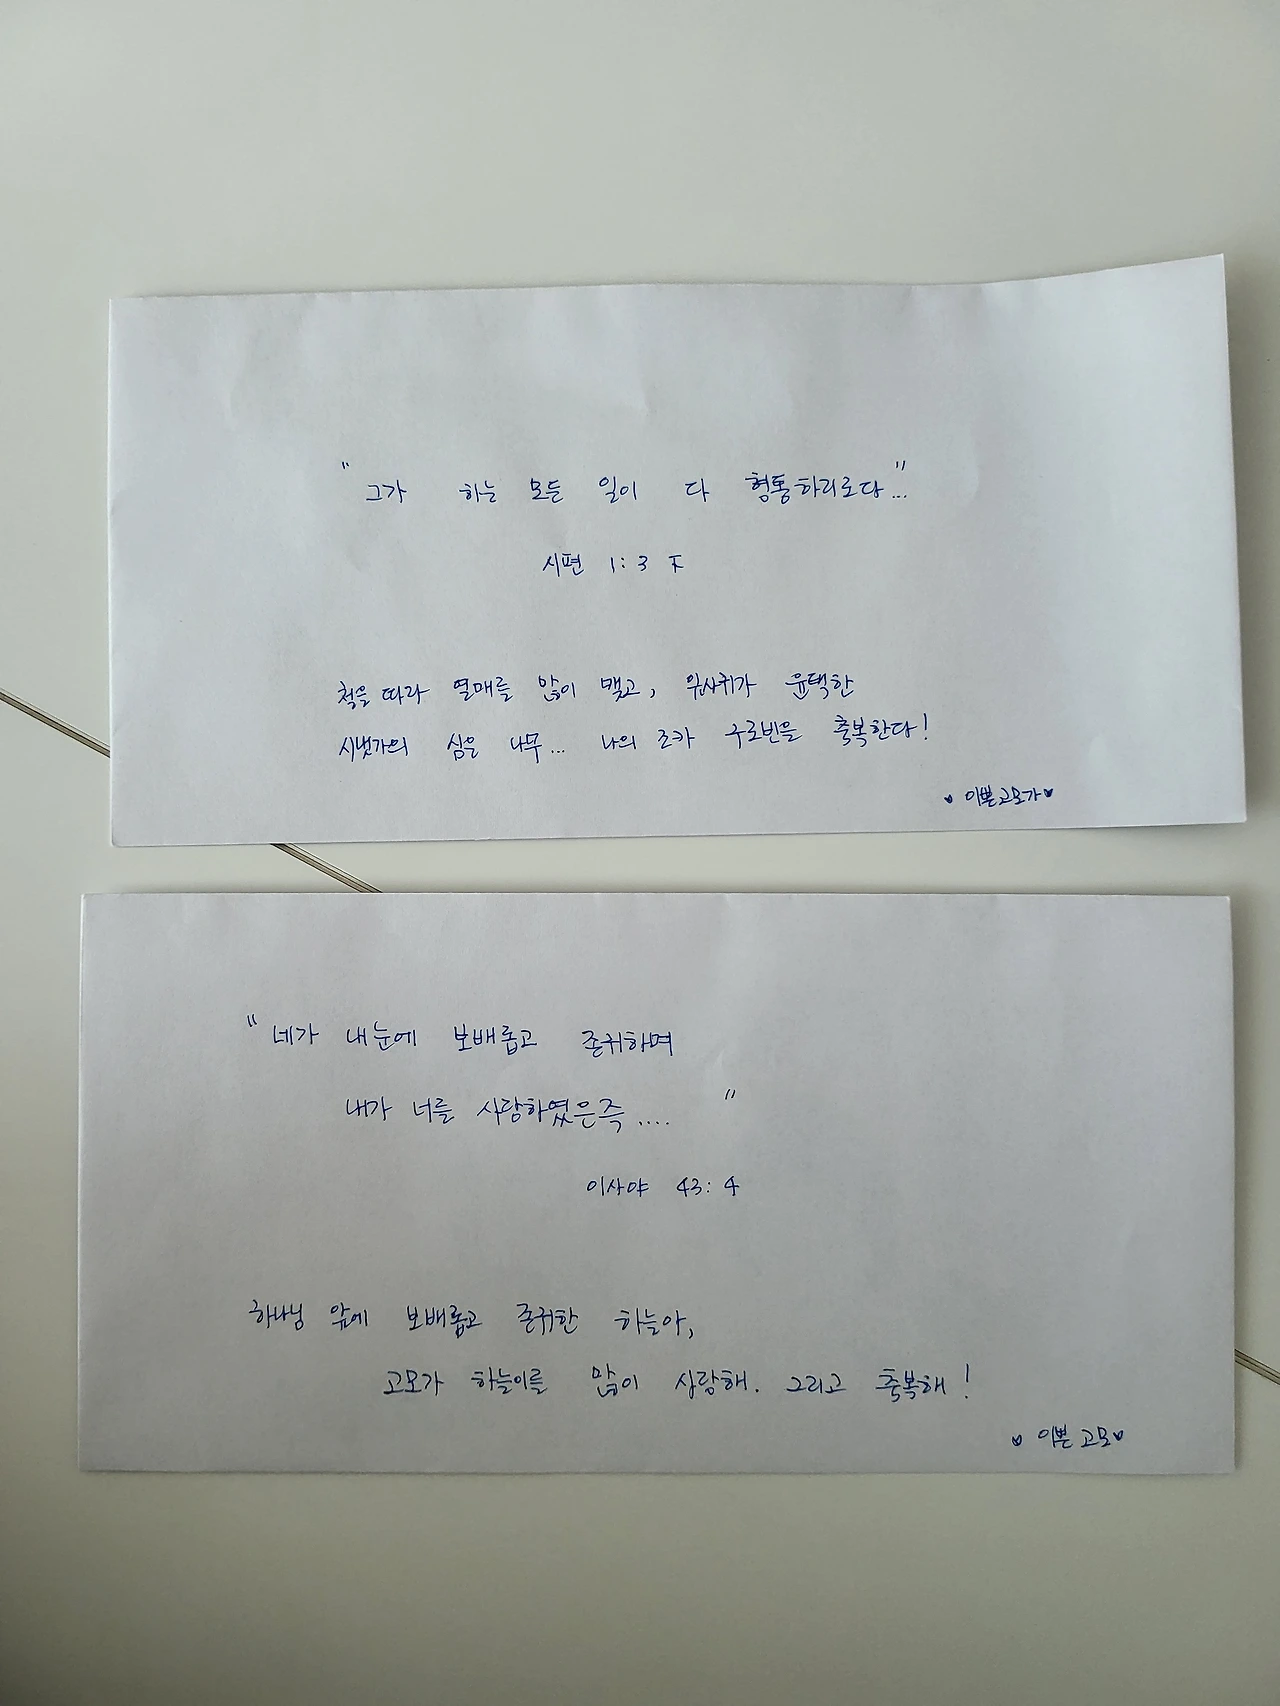 "그가 하는 모든 일이 다 형통하리로다..."
시편 1:3 下
철을 따라 열매를 많이 맺고, 잎사귀가 윤택한
시냇가의 심은 나무... 나의 조카 구로빈을 축복한다!
♥ 이쁜고모가♥
"네가 내눈에 보배롭고 존귀하며
내가 너를 사랑하였은즉.... "
이사야 43:4
하나님 앞에 보배롭고 존귀한 하늘아,
고모가 하늘이를 많이 사랑해. 그리고 축복해!
♥ 이쁜 고모♥